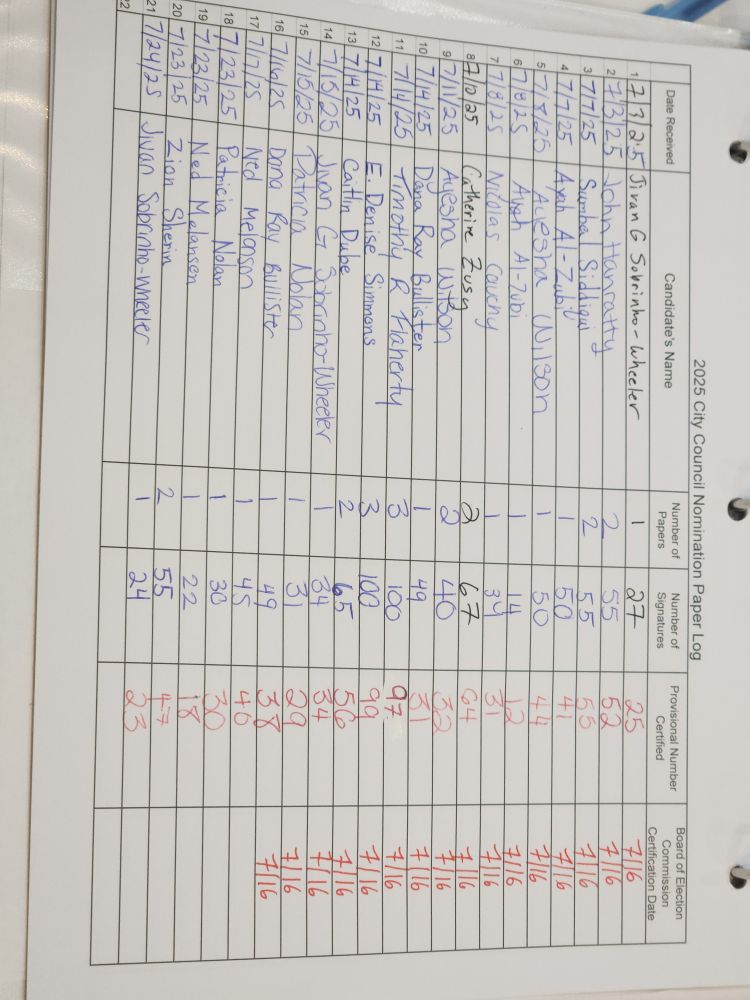 2025 City Council Nomination Paper Log
Date Received Candidate's Name Number of Papers Number of Signatures Provisional Number Certified Board of Election Commission Certification Date
1 7/3/25 Jivan G Sobrinho-Wheeler 1 27 25 7/16
2 7/3/25 John Hanratty 2 55 52 7/16
3 7/7/25 Sumbul Siddiqui 2 55 55 7/16
4 7/7/25 Ayah Al-Zubi 1 50 41 7/16
5 7/8/25 Ayesha Wilson 1 50 44 7/16
6 7/8/25 Ayah Al-Zubi 1 14 12 7/16
7 7/8/25 Nicolas Cauchy 1 34 31 7/16
8 7/10/25 Catherine Zusy 2 67 64 7/16
9 7/11/25 Ayesha Wilson 2 40 32 7/16
10 7/14/25 Dana Ray Bullister 1 49 31 7/16
11 7/14/25 Timothy R Flaherty 3 100 97 7/16
12 7/14/25 E. Denise Simmons 3 100 99 7/16
13 7/14/25 Caitlin Dube 2 65 56 7/16
14 7/15/25 Jivan G Sobrinho-Wheeler 1 34 34 7/16
15 7/15/25 Patricia Nolan 1 31 29 7/16
16 7/16/25 Dana Ray Bullister 1 49 38 7/16
17 7/17/25 Ned Melanson 1 45 40
18 7/23/25 Patricia Nolan 1 30 30
19 7/23/25 Ned Melansen 1 22 18
20 7/23/25 Zion Sherin 2 55 47
21 7/24/25 Jivan Sobrinho-Wheeler 1 24 23
22